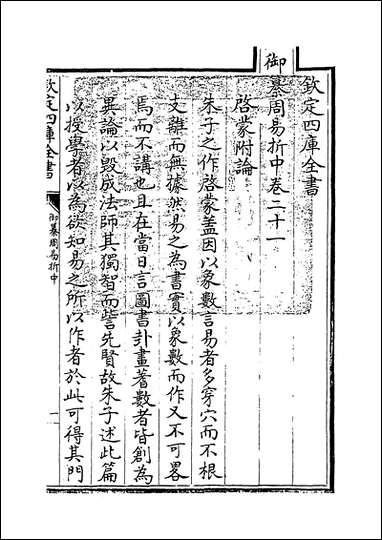 欽定四庫全書
御
纂周易折中卷二十一
啓蒙附論
朱子之作啓蒙蓋因以象數言易者多穿穴而不根
支離而無據然易之為書實以象數而作又不可畧
焉而不講也且在當日言圖書卦畫蓍數者皆創為
異論以毀成法師其獨智而訾先賢故朱子述此篇
以授學者以為欲知易之所以作者於此可得其門
欽定四庫全書
御纂周易折中
一